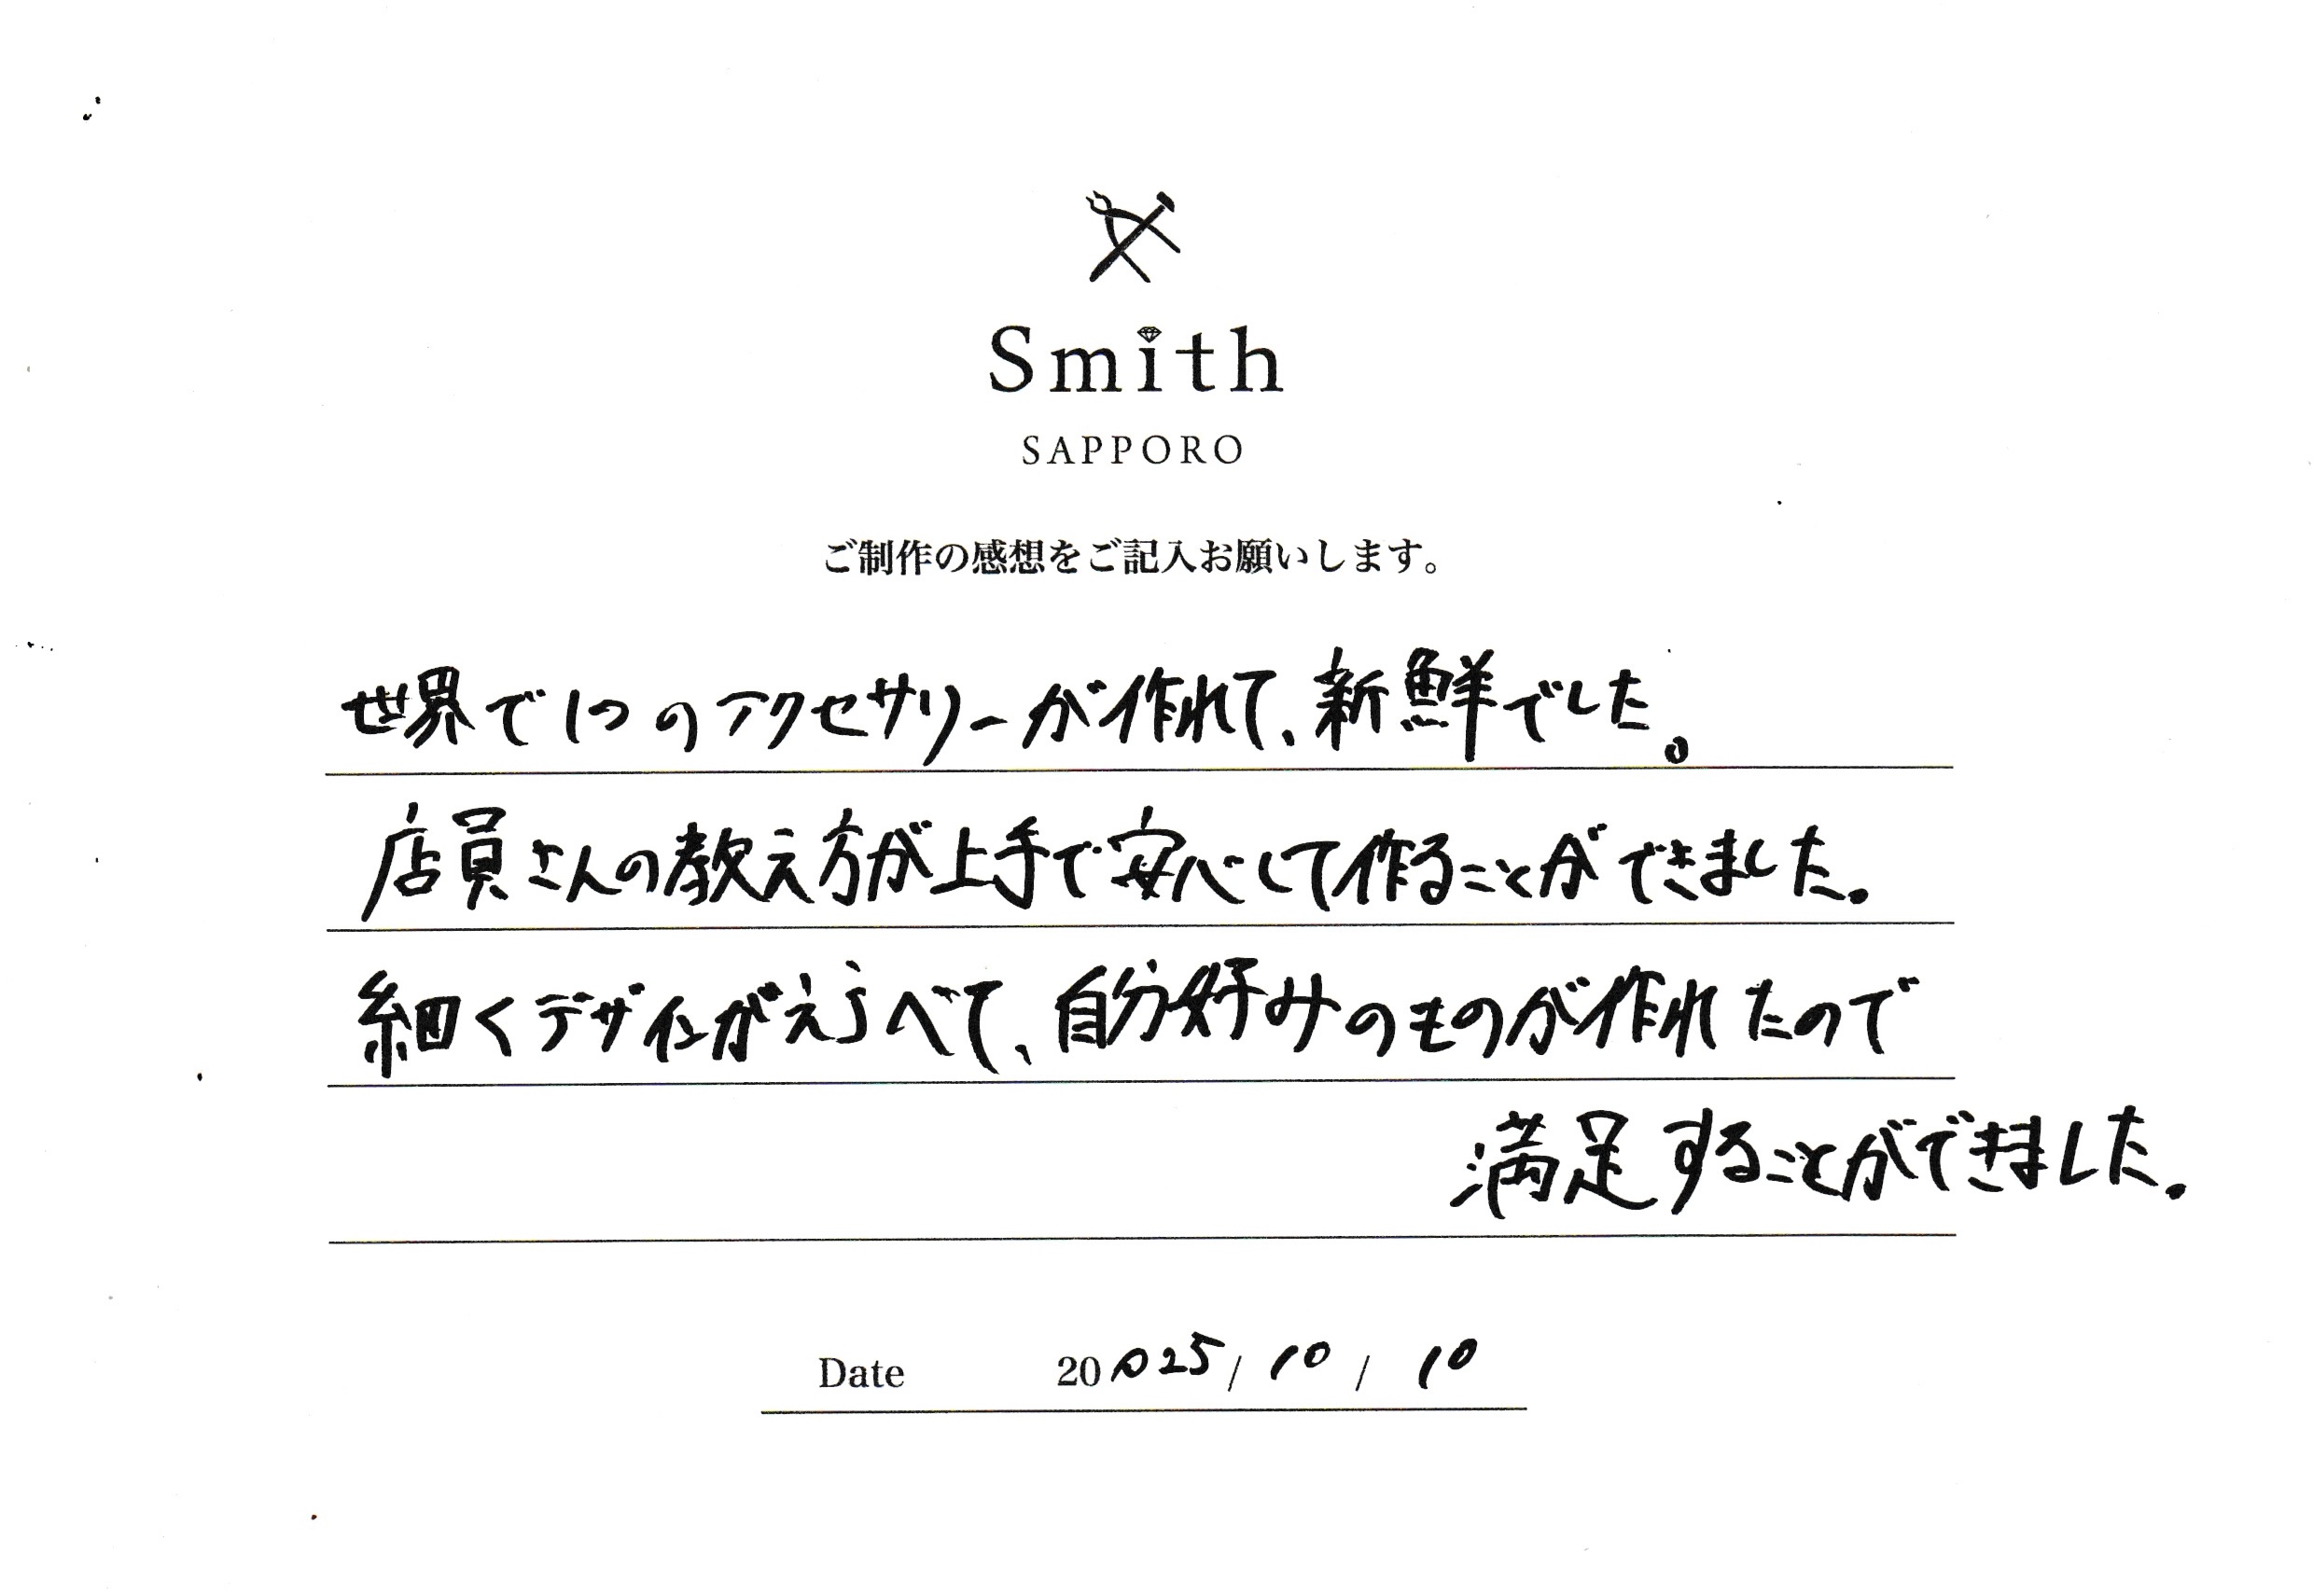 Smith
SAPPORO
ご制作の感想をご記入お願いします。
世界で1つのアクセサリーが作れて、新鮮でした。
店員さんの教え方が上手で安心して作ることができました。
細くデザインがえらべて、自分好みのものが作れたので
満足することができました。
Date 20 025/ 10 / 10